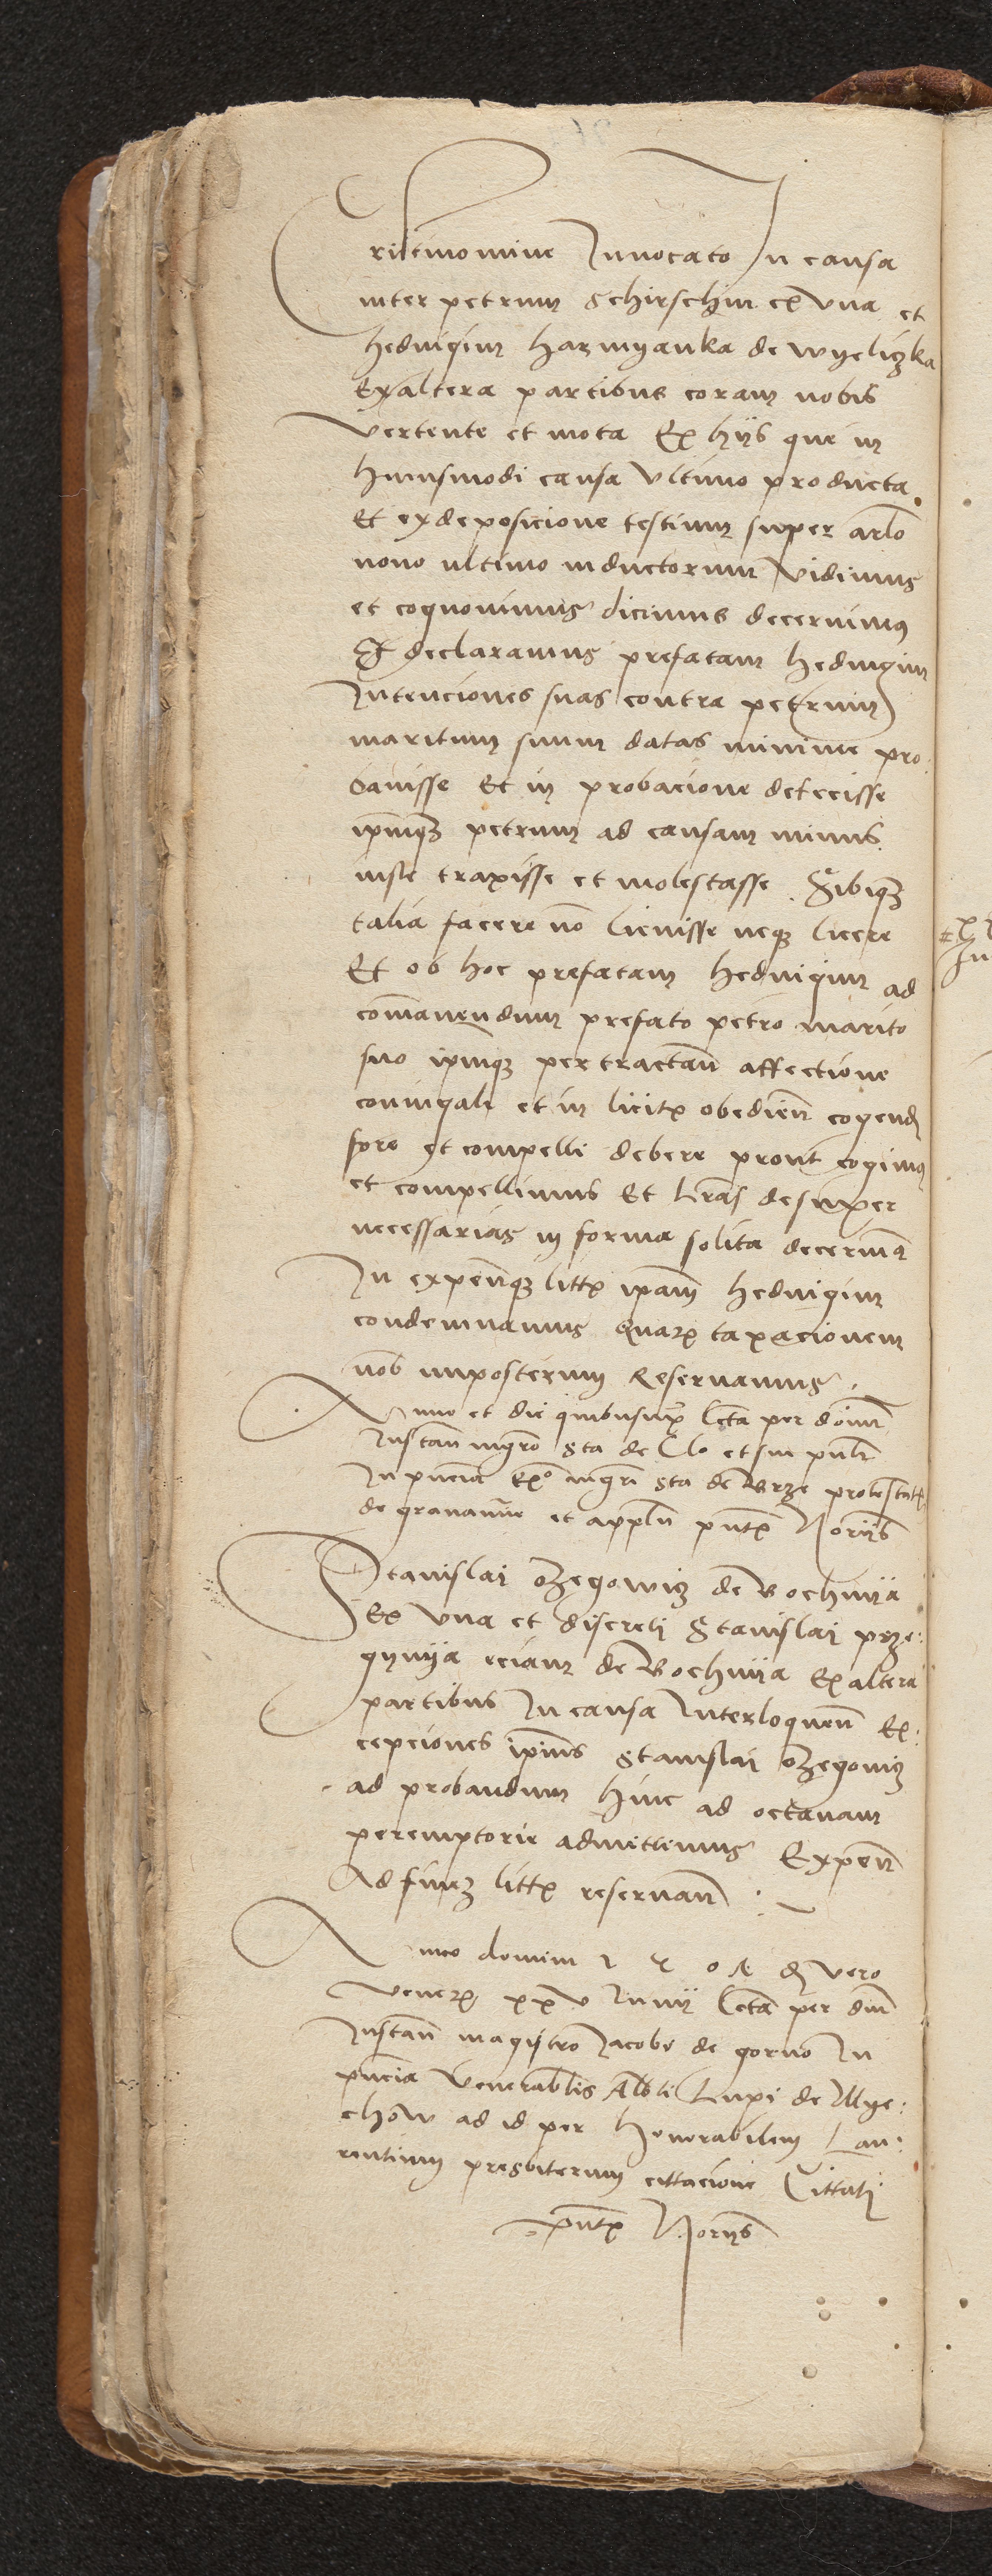 Cristi nomine Invocato In causa
inter petrum Schirschin ex Una et
hedvigim harmyanka de wyeliczka
Ex altera partibus coram nobis
vertente et mota Ex hijs que in
huiusmodi causa Ultimo producta
Et ex deposicione testium super arlo
nono ultimo inductorum Vidimus
et cognovimus dicimus decernimus
Et declaramus prefatam hedvigim
Intenciones suas contra petrum
maritum suum datas minime pro
bavisse Et in probacione defecisse
ipmque petrum ad causam minus
iuste traxisse et molestasse Sibique
talia facere no licuisse neque licere
Et ob hoc prefatam hedvigim ad
comanendum prefato petro marito
suo ipmque pertractan affectione
coniugali et in licitis obedien cogend
fore et compelli debere prout cogimus
et compellimus Et lras desuper
necessarias in forma solita decernim
In expenque littis ipam hedvigim
condemnamus Quarum taxacionem
nob imposterum Reservamus
Anno et die quibus supra lcta per dominum
Instan mgro Sta de Clo et sui pnli
In pncia mgri Sta de Brze protestat
de gravamine et appln pntibus Norijs
Stanislai Ozegowicz de Bochnija
Ex Una et discreti Stanislai prze
gynija eciam de Bochnija Ex altera
partibus In causa Interloquen Ex
cepciones ipius Stanislai Ozegowicz
ad probandum hinc ad octavam
peremptorie admittimus Expen
Ad finem littis reservan
Anno domini 1 5 0 4 d vero
veneris xxv Iunij lcta per dm
Instan magistro Iacobo de gorno In
pncia Venerablis Alberti Lupi de Mye
chow ad id per honorabilem Lau
rentium presbiterum cittacione Cittati
pntibus Norijs